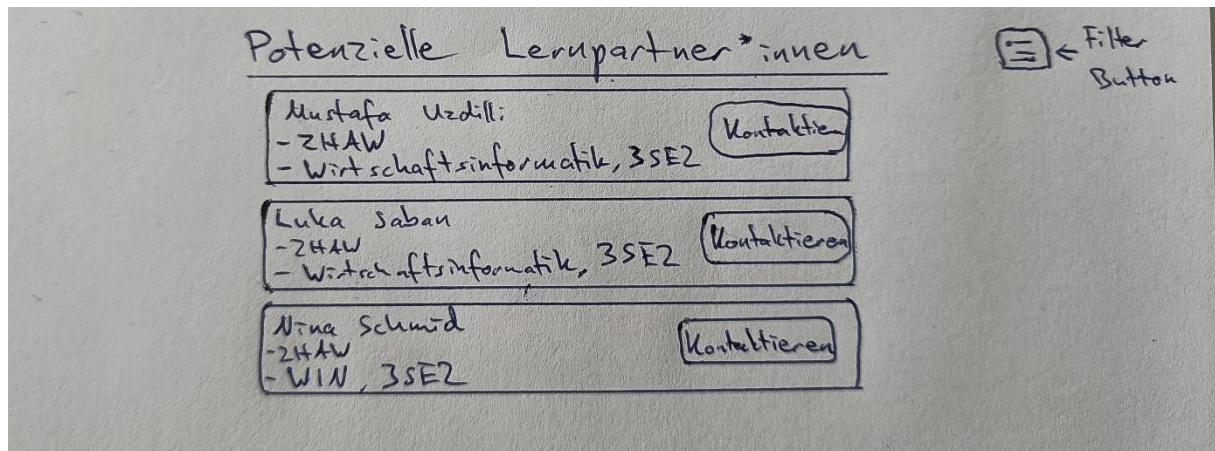 Potenzielle Lernpartner*innen
Filter
Button
Mustafa Uzdilli
- ZHAW
- Wirtschaftsinformatik, 3SE2
Kontaktie
Luka Saban
- ZHAW
- Wirtschaftsinformatik, 3SE2
Kontaktieren
Nina Schmid
- ZHAW
- WIN, 3SE2
Kontaktieren